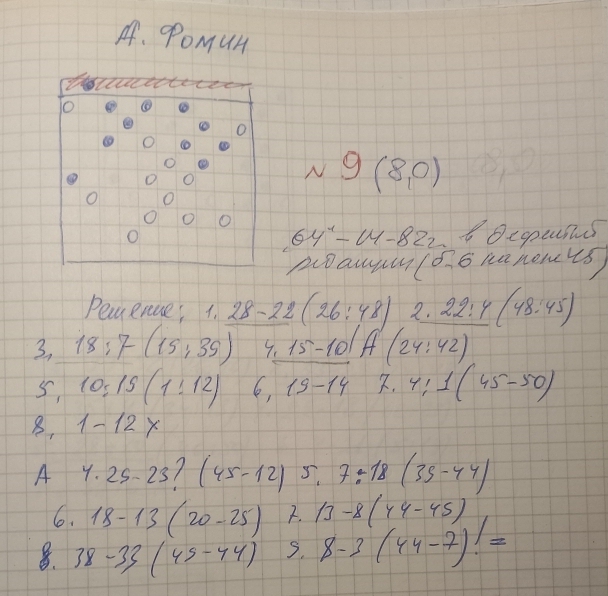 А. Фомин
№ 9 (8,0)
64" - 04 - 82г. в дефектной
редакции (б. 6 на поле 45)
Решение: 1. 28-22 (26:48) 2. 22:4 (48:45)
3. 18:7 (15:39) 4. 15-10! А (24:42)
5. 10:19 (1:12) 6. 19-14 7. 4:1 (45-50)
8. 1-12 х
А 4. 29-23? (45-12) 5. 7:18 (39-44)
6. 18-13 (20-25) 7. 13-8 (44-49)
8. 38-33 (49-44) 9. 8-3 (44-7)! =